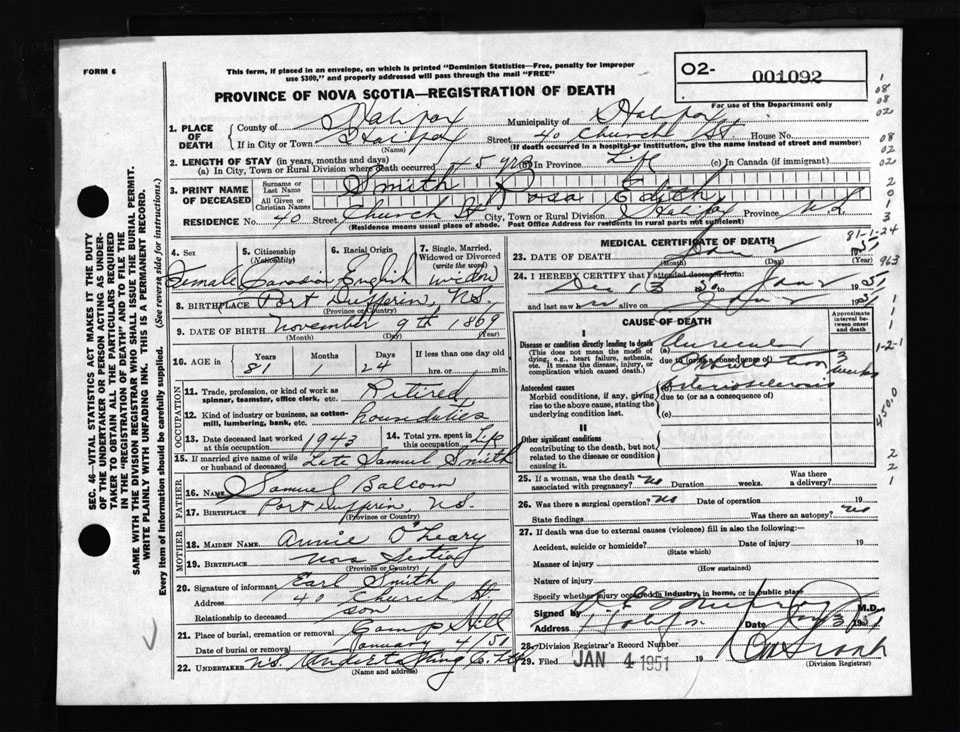 FORM 6
This form, if placed in an envelope, on which is printed "Dominion Statistics—Free, penalty for improper
use $300," and properly addressed will pass through the mail "FREE"
PROVINCE OF NOVA SCOTIA—REGISTRATION OF DEATH
O2- 001092
For use of the Department only
1. PLACE OF DEATH
County of Halifax Municipality of Halifax
If in City or Town Halifax Street 40 Church St House No.
(Name) (If death occurred in a hospital or institution, give the name instead of street and number)
2. LENGTH OF STAY (in years, months and days)
(a) In City, Town or Rural Division where death occurred 45 yrs (b) In Province Life (c) In Canada (if immigrant)
3. PRINT NAME OF DECEASED
Surname or Last Name Smith
All Given or Christian Names Rosa Edith
RESIDENCE No. 40 Street Church St City, Town or Rural Division Halifax Province N.S.
(Residence means usual place of abode. Post Office Address for residents in rural parts not sufficient)
4. Sex Female
5. Citizenship (Nationality) Canadian
6. Racial Origin English
7. Single, Married, Widowed or Divorced (write the word) Widow
8. BIRTHPLACE Port Dufferin, N.S.
(Province or Country)
9. DATE OF BIRTH November 9th 1869
(Month) (Day) (Year)
10. AGE in Years 81 Months 1 Days 24 If less than one day old hrs. or min.
OCCUPATION
11. Trade, profession, or kind of work as spinner, teamster, office clerk, etc. Retired
12. Kind of industry or business, as cotton-mill, lumbering, bank, etc.
13. Date deceased last worked at this occupation 1943
14. Total yrs. spent in this occupation Life
15. If married give name of wife or husband of deceased Late Samuel Smith
FATHER
16. NAME Samuel Balcom
17. BIRTHPLACE Port Dufferin N.S.
(Province or Country)
MOTHER
18. MAIDEN NAME Annie O'Leary
19. BIRTHPLACE Nova Scotia
(Province or Country)
20. Signature of informant Earl Smith
Address 40 Church St.
Relationship to deceased son
21. Place of burial, cremation or removal Camp Hill
Date of burial or removal January 4/51
22. UNDERTAKER N.S. Undertaking Co.
(Name and address)
MEDICAL CERTIFICATE OF DEATH
81-1-24
23. DATE OF DEATH Jan 1951
(Month) (Day) (Year)
24. I HEREBY CERTIFY that I attended deceased from:
Dec 13 1950 Jan 2 1951
and last saw alive on Jan 1951
CAUSE OF DEATH
Approximate interval between onset and death
I
Disease or condition directly leading to death
(This does not mean the mode of dying, e.g., heart failure, asthenia, etc. It means the disease, injury, or complication which caused death.)
(a) Auricular
due to (or as a consequence of)
3 weeks
Antecedent causes
Morbid conditions, if any, giving rise to the above cause, stating the underlying condition last.
(b) Arteriosclerosis
due to (or as a consequence of)
(c)
II
Other significant conditions
contributing to the death, but not related to the disease or condition causing it.
25. If a woman, was the death associated with pregnancy? No Duration weeks. Was there a delivery?
26. Was there a surgical operation? No Date of operation 19
State findings Was there an autopsy? No
27. If death was due to external causes (violence) fill in also the following:—
Accident, suicide or homicide? Date of injury 19
(State which)
Manner of injury
(How sustained)
Nature of injury
Specify whether injury occurred in industry, in home, or in public place
Signed by M.D.
Address Halifax Date Jan 3 1951
28. Division Registrar's Record Number
29. Filed JAN 4 1951 19
(Division Registrar)
SEC. 46—VITAL STATISTICS ACT MAKES IT THE DUTY
OF THE UNDERTAKER OR PERSON ACTING AS UNDER-
TAKER TO OBTAIN ALL THE PARTICULARS REQUIRED
IN THE "REGISTRATION OF DEATH" AND TO FILE THE
SAME WITH THE DIVISION REGISTRAR WHO SHALL ISSUE THE BURIAL PERMIT.
WRITE PLAINLY WITH UNFADING INK. THIS IS A PERMANENT RECORD.
Every item of information should be carefully supplied. (See reverse side for instructions.)
1
08
08
02
08
02
02
2
0
1
3
963
1
1
1
1-2-1
450.0
2
2
1